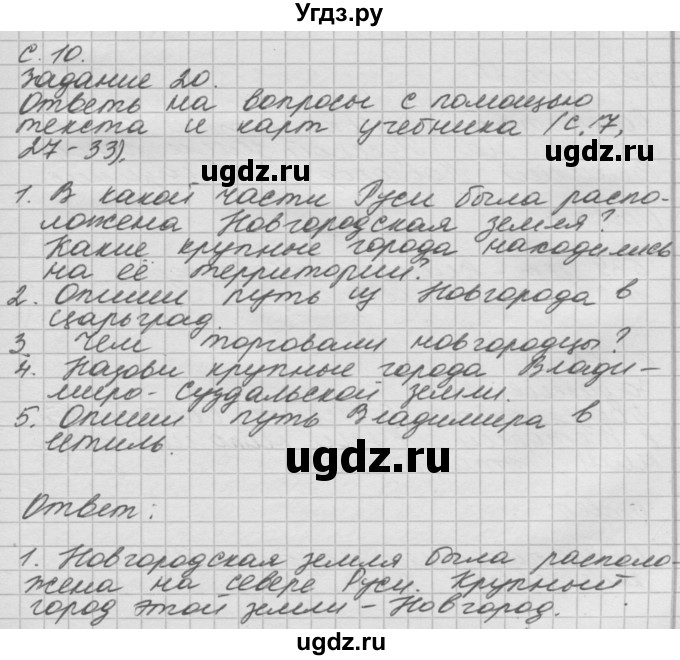 Угдз.ру
с. 10.
Задание 20.
Ответь на вопросы с помощью
текста и карт учебника (с. 7,
27-33).
ugdz.ru
ugdz.ru
1. В какой части Руси была распо-
ложена Новгородская земля?
Какие крупные города находились
на её территории?
2. Опиши путь из Новгорода в
Царьград.
ugdz.ru
3. Чем торговали новгородцы?
4. Назови крупные города Влади-
миро-Суздальской земли.
5. Опиши путь Владимира в
Итиль.
ugdz.ru
Ответ:
1. Новгородская земля была располо-
жена на севере Руси. Крупный
город этой земли - Новгород.
ugdz.ru